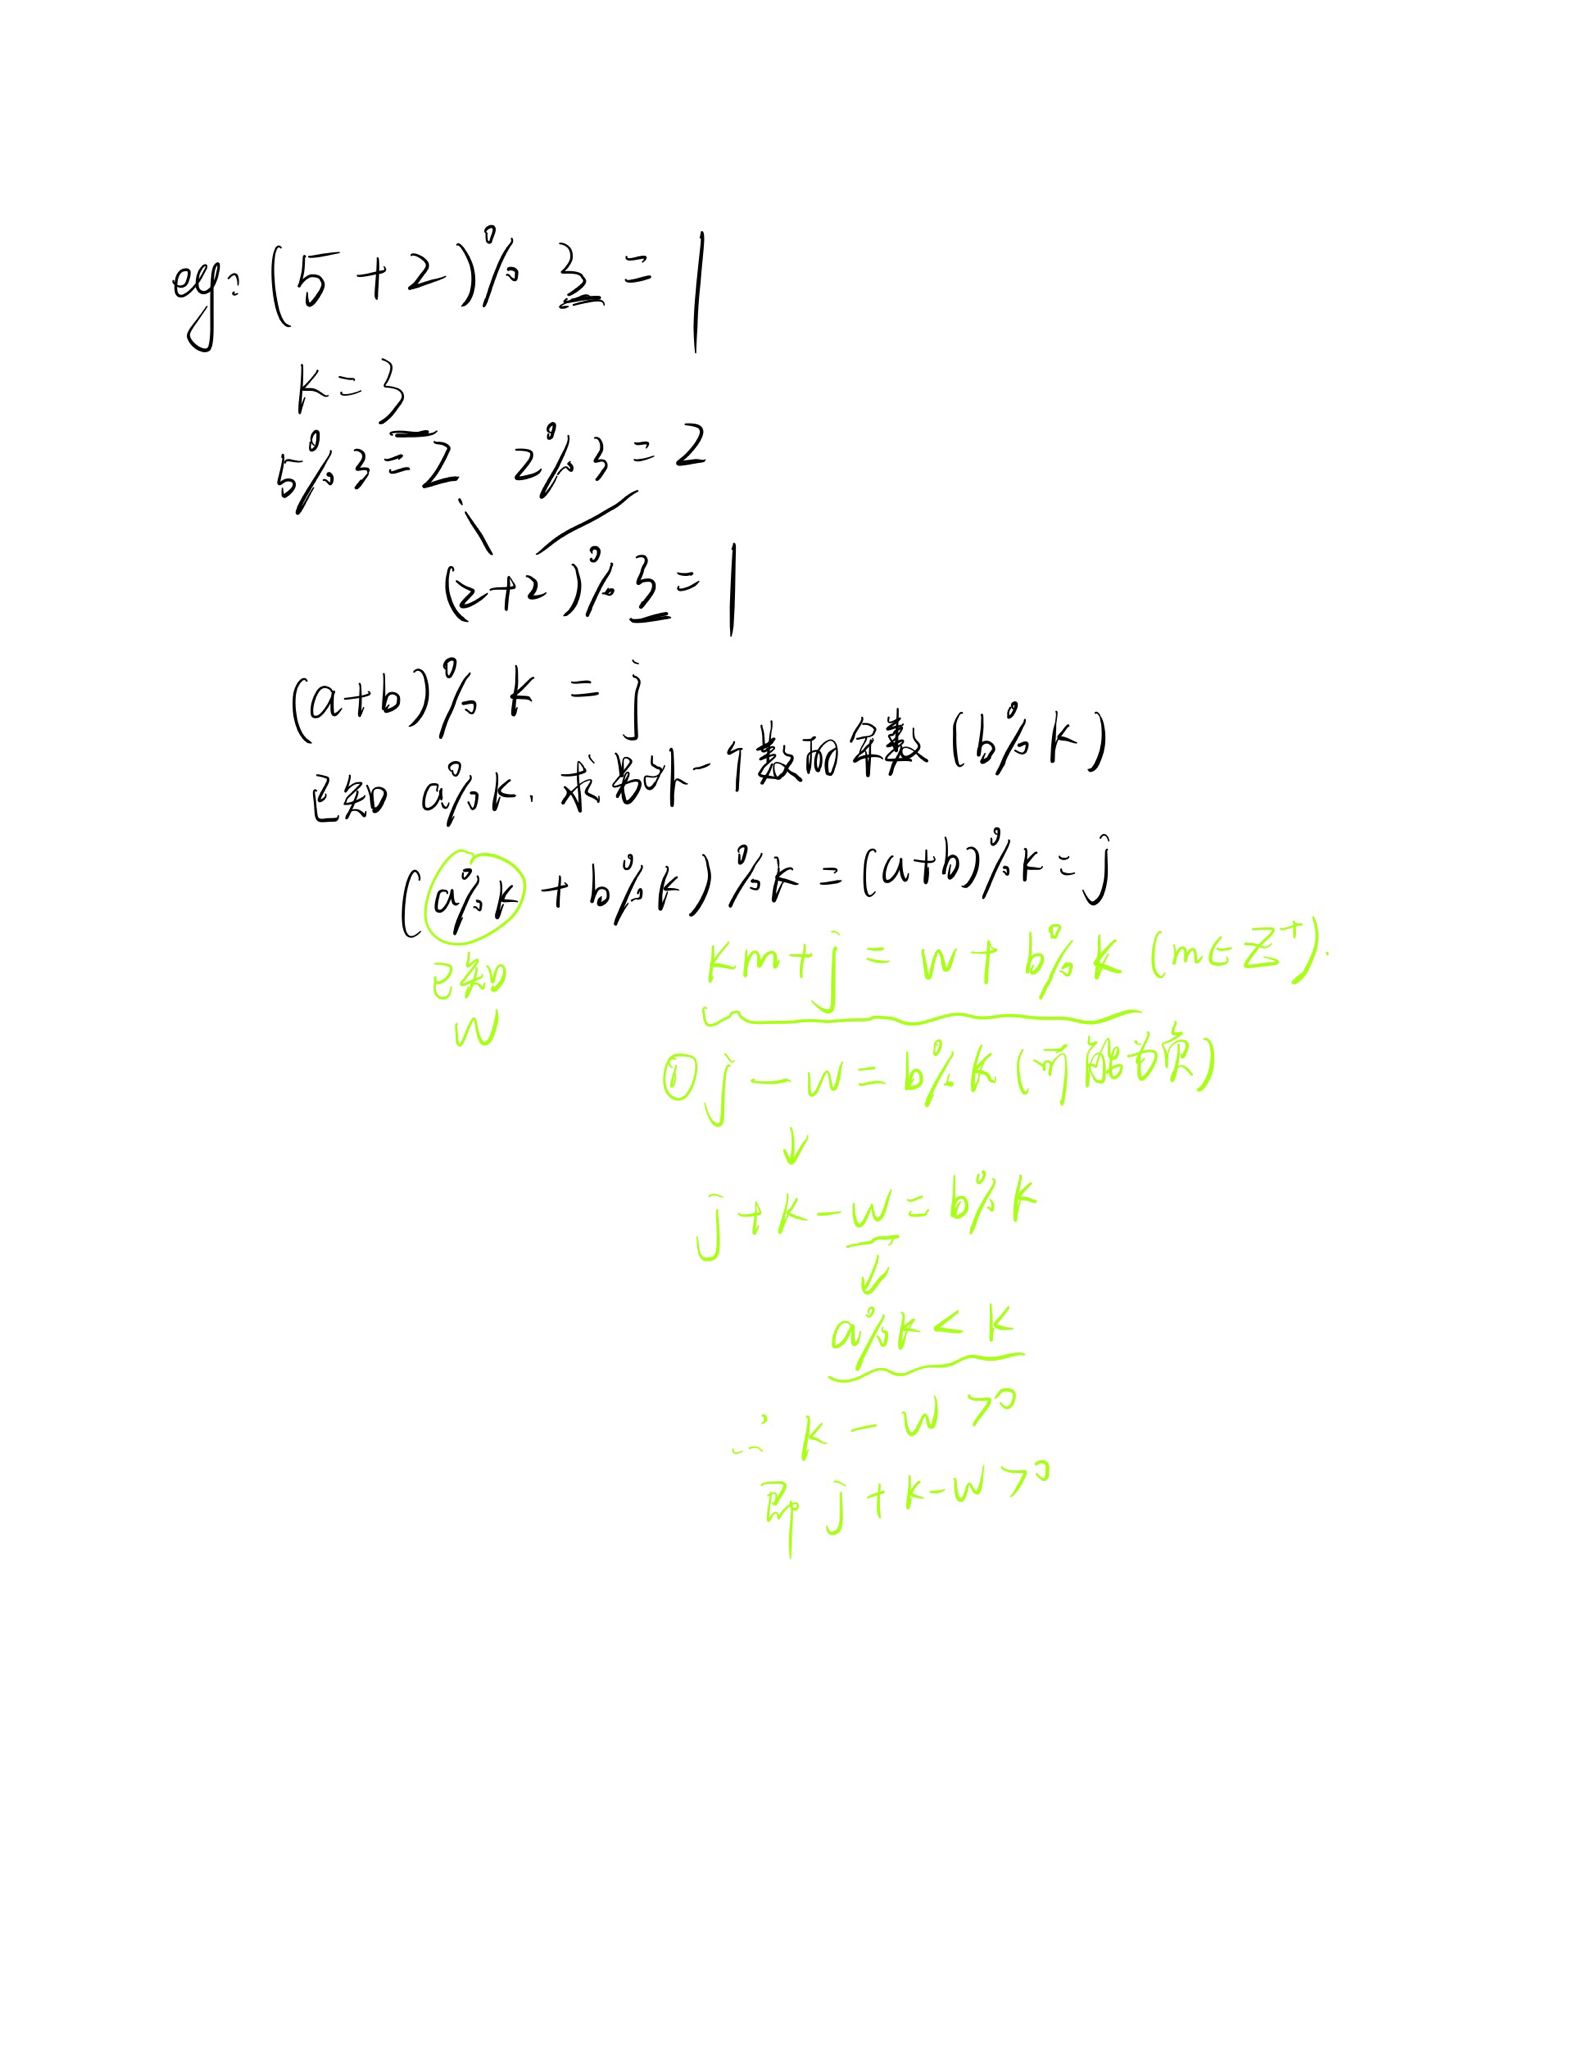 eg: (5+2)% 3 = 1
k=3
5%3=2 2%3=2
(2+2)%3=1
(a+b)% k = j
已知 a%k, 求另外一个数的余数 (b%k)
(a%k + b%k) %k = (a+b)%k=j
已知
w
km+j = w + b%k (m∈Z⁺).
① j-w=b%k (可能为负)
↓
j+k-w=b%k
↓
a%k < k
∴ k-w>0
即 j+k-w>0